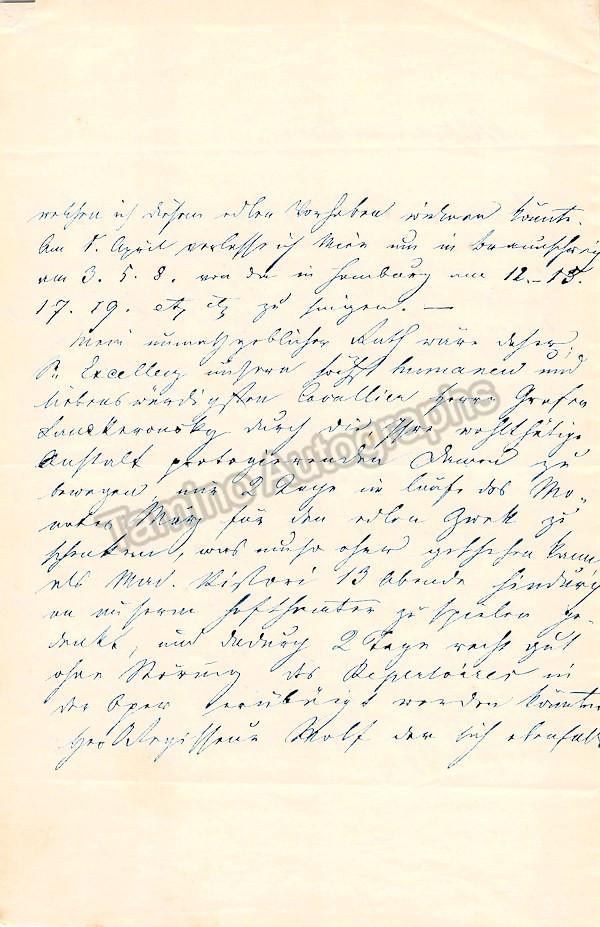 welchen ich diesem edlen Vorhaben widmen könnte.
Am 1. April verlasse ich Wien um in Braunschweig
am 3. 5. 8. von da in Hamburg am 12. 15.
17. 19. etz etz zu singen. —
Mein unmaßgeblicher Rath wäre daher,
Sr. Excellenz unsern höchst humanen und
liebenswürdigsten Cavallier Herrn Grafen
Lanckoronsky durch die Ihre wohlthätige
Anstalt protegierenden Damen zu
bewegen, nur 2 Tage im laufe des Mo-
nates März für den edlen Zwek zu
schenken, was umso eher geschehen kann
als Mad. Ristori 13 Abende hindurch
an unserem Hoftheater zu spielen ge-
denkt, und dadurch 2 Tage recht gut
ohne Störung des Repertoires in
der Oper erübrigt werden könnten
Herr Regisseur Wolf der sich ebenfalls
Tamino Autographs